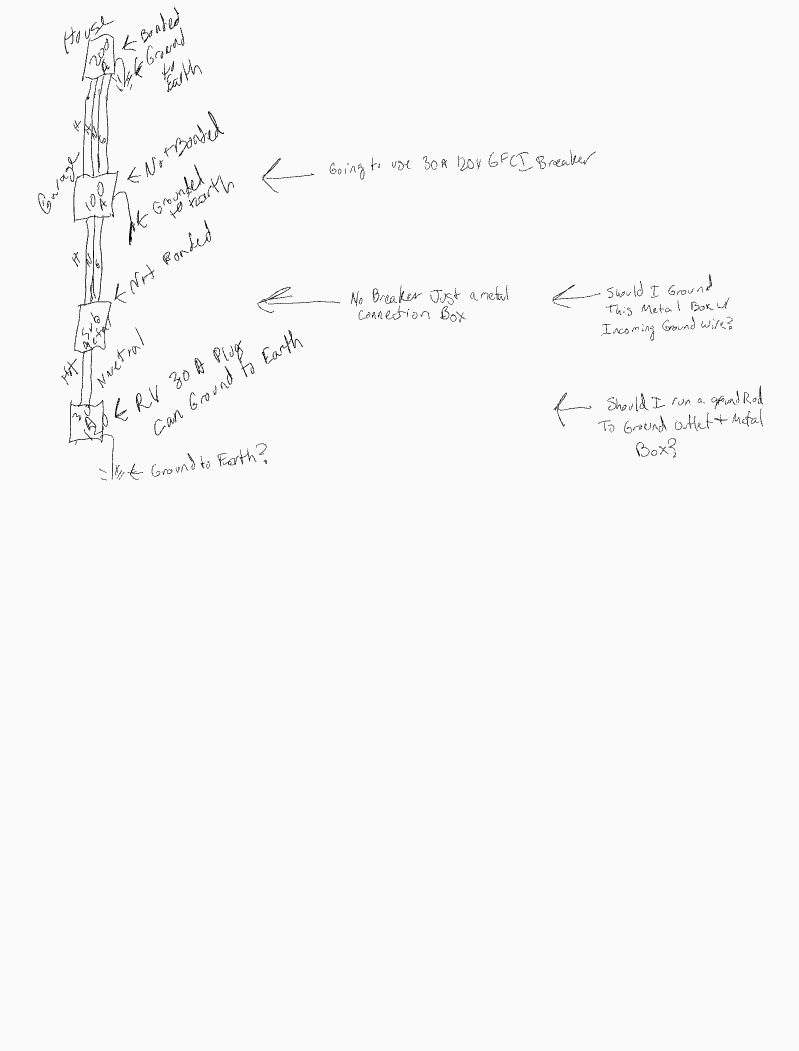 House
200
A
← Bonded
← Ground
to
Earth
H
H
N
G
Garage
100
A
← Not Bonded
← Grounded
to Earth
← Going to use 30A 120V GFCI Breaker
H
N
G
← Not Bonded
Sub
Metal
← No Breaker Just a metal
Connection Box
← Should I Ground
This Metal Box w/
Incoming Ground Wire?
Hot
Nuetral
30
A
← RV 30 A Plug
Can Ground to Earth
← Should I run a ground Rod
To Ground Outlet + Metal
Box?
← Ground to Earth?